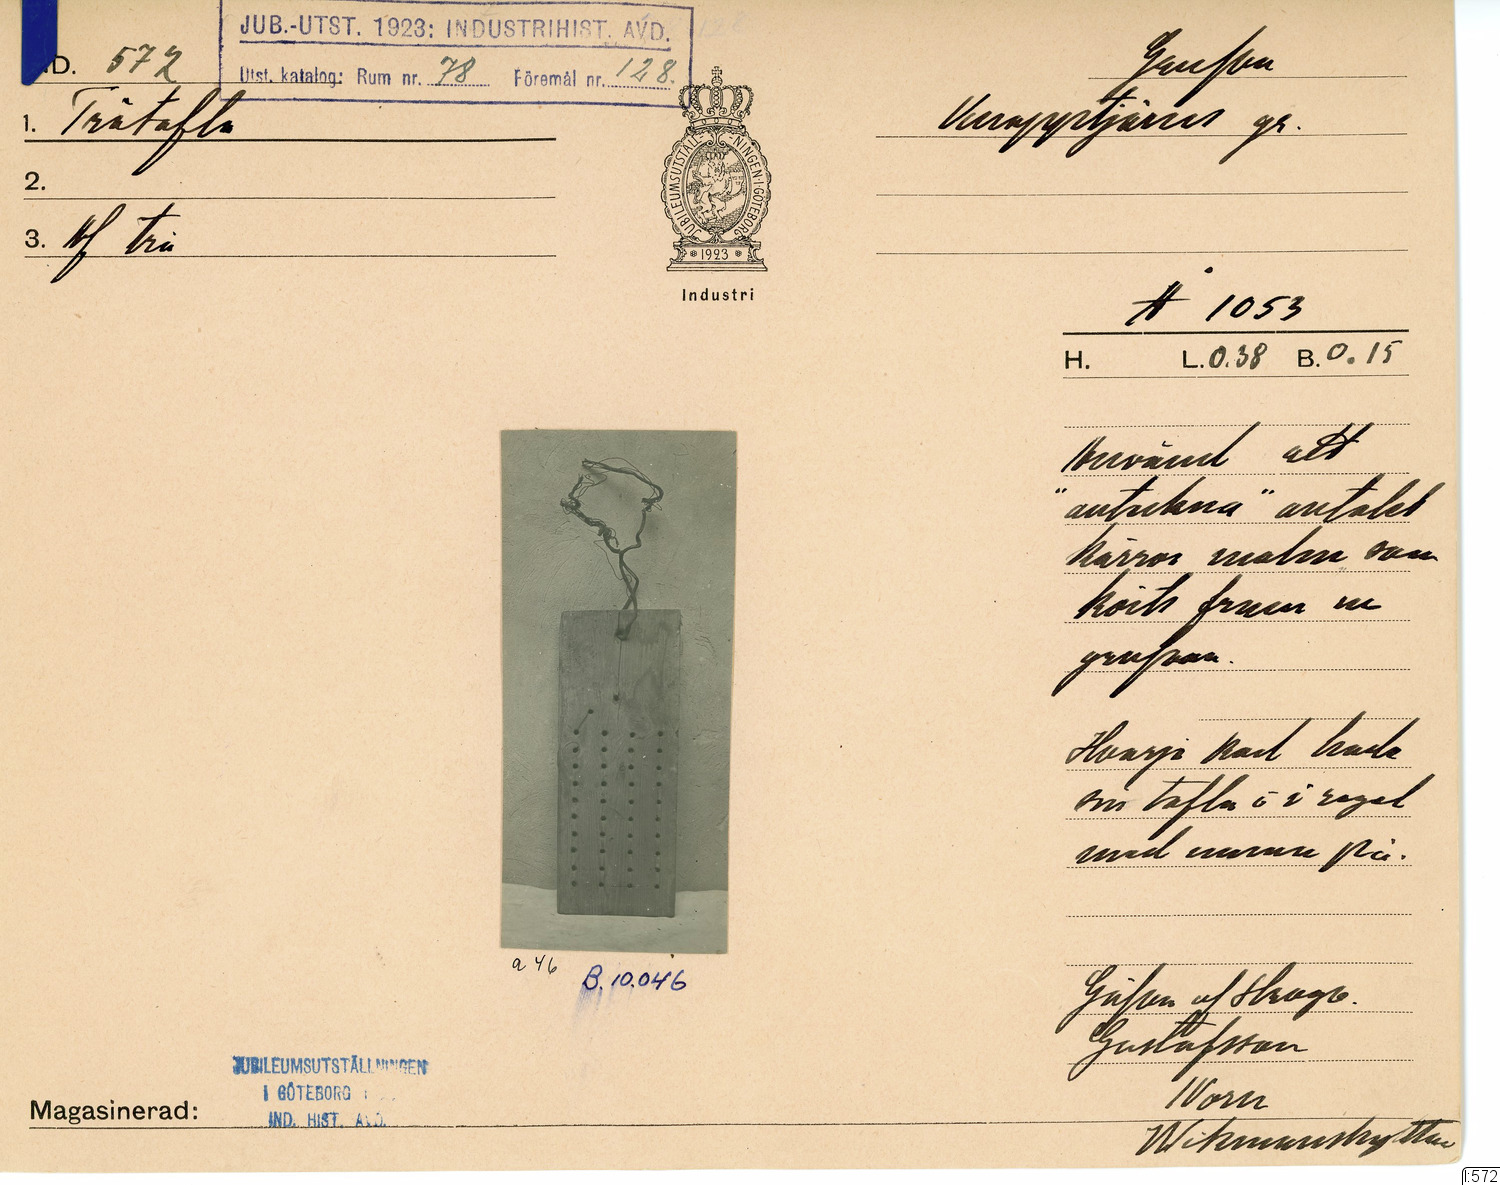 JUB.-UTST. 1923: INDUSTRIHIST. AVD.
Utst. katalog: Rum nr. 78 Föremål nr. 128.
D. 572
1. Trätafla
2.
3. Af trä
JUBILEUMSUTSTÄLLNINGEN·I·GÖTEBORG
* 1923 *
Industri
Grufvan
Knappstjärns gr.
Å 1053
H. L. 0.38 B. 0.15
Använd att
"anteckna" antalet
kärror malm som
körts fram ur
grufvan.
Hvarje karl hade
sin tafla o i regel
med namn på.
Gåfva af Skogv.
Gustafsson
Norn
Wikmanshyttan
a 46
B.10.046
JUBILEUMSUTSTÄLLNINGEN
I GÖTEBORG
IND. HIST. AVD.
Magasinerad:
I:572